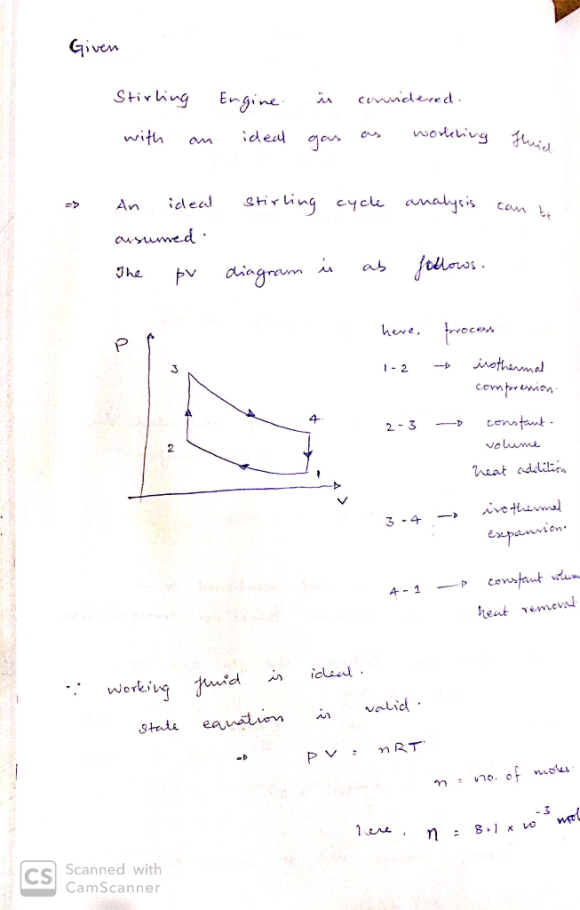 Given
Stirling Engine is considered.
with an ideal gas as working fluid
⇒ An ideal stirling cycle analysis can be
assumed.
The pv diagram is as follows.
P
3
4
2
1
V
here, process
1-2 → isothermal
compression.
2-3 → constant-
volume
heat addition
3-4 → isothermal
expansion.
4-1 → constant volum
heat removal
∵ working fluid is ideal.
state equation is valid.
⇒ PV = nRT
n = no. of moles.
here, n = 8.1 x 10⁻³ mol
CS Scanned with
CamScanner